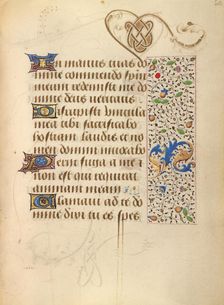 In manus tuas do
mine commendo spiri
tum redemisti me do
mine deus veritatis
Dirupisti vincula
mea tibi sacrificabo
hostiam laudis et no
men domini invocabo
Periit fuga a me et
non est qui requirat
animam meam
Clamavi ad te do
mine dixi tu es spes